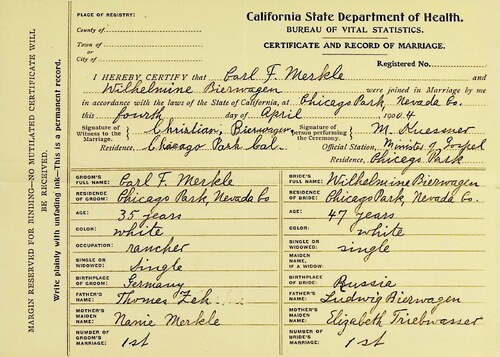 California State Department of Health.
BUREAU OF VITAL STATISTICS.
CERTIFICATE AND RECORD OF MARRIAGE.
PLACE OF REGISTRY:
County of
Town of
or
City of
Registered No.
I HEREBY CERTIFY that Carl F. Merkle
and Wilhelmine Bierwagen were joined in Marriage by me
in accordance with the laws of the State of California, at Chicago Park, Nevada Co.
this fourth day of April 1904
Signature of Witness to the Marriage, Christian Bierwagen, Signature of person performing the Ceremony, M. Kuessner
Residence, Chicago Park Cal. Official Station, Minister of Gospel
Residence, Chicago Park
GROOM'S FULL NAME: Carl F. Merkle BRIDE'S FULL NAME: Wilhelmine Bierwagen
RESIDENCE OF GROOM: Chicago Park, Nevada Co RESIDENCE OF BRIDE: Chicago Park, Nevada Co.
AGE: 35 years AGE: 47 years
COLOR: white COLOR: white
OCCUPATION: rancher SINGLE OR WIDOWED: single
SINGLE OR WIDOWED: Single MAIDEN NAME, IF A WIDOW:
BIRTHPLACE OF GROOM: Germany BIRTHPLACE OF BRIDE: Russia
FATHER'S NAME: Thomas Zeh FATHER'S NAME: Ludwig Bierwagen
MOTHER'S MAIDEN NAME: Nanie Merkle MOTHER'S MAIDEN NAME: Elizabeth Triebwasser
NUMBER OF GROOM'S MARRIAGE: 1st NUMBER OF BRIDE'S MARRIAGE: 1st
MARGIN RESERVED FOR BINDING—NO MUTILATED CERTIFICATE WILL
BE RECEIVED.
Write plainly with unfading ink—This is a permanent record.